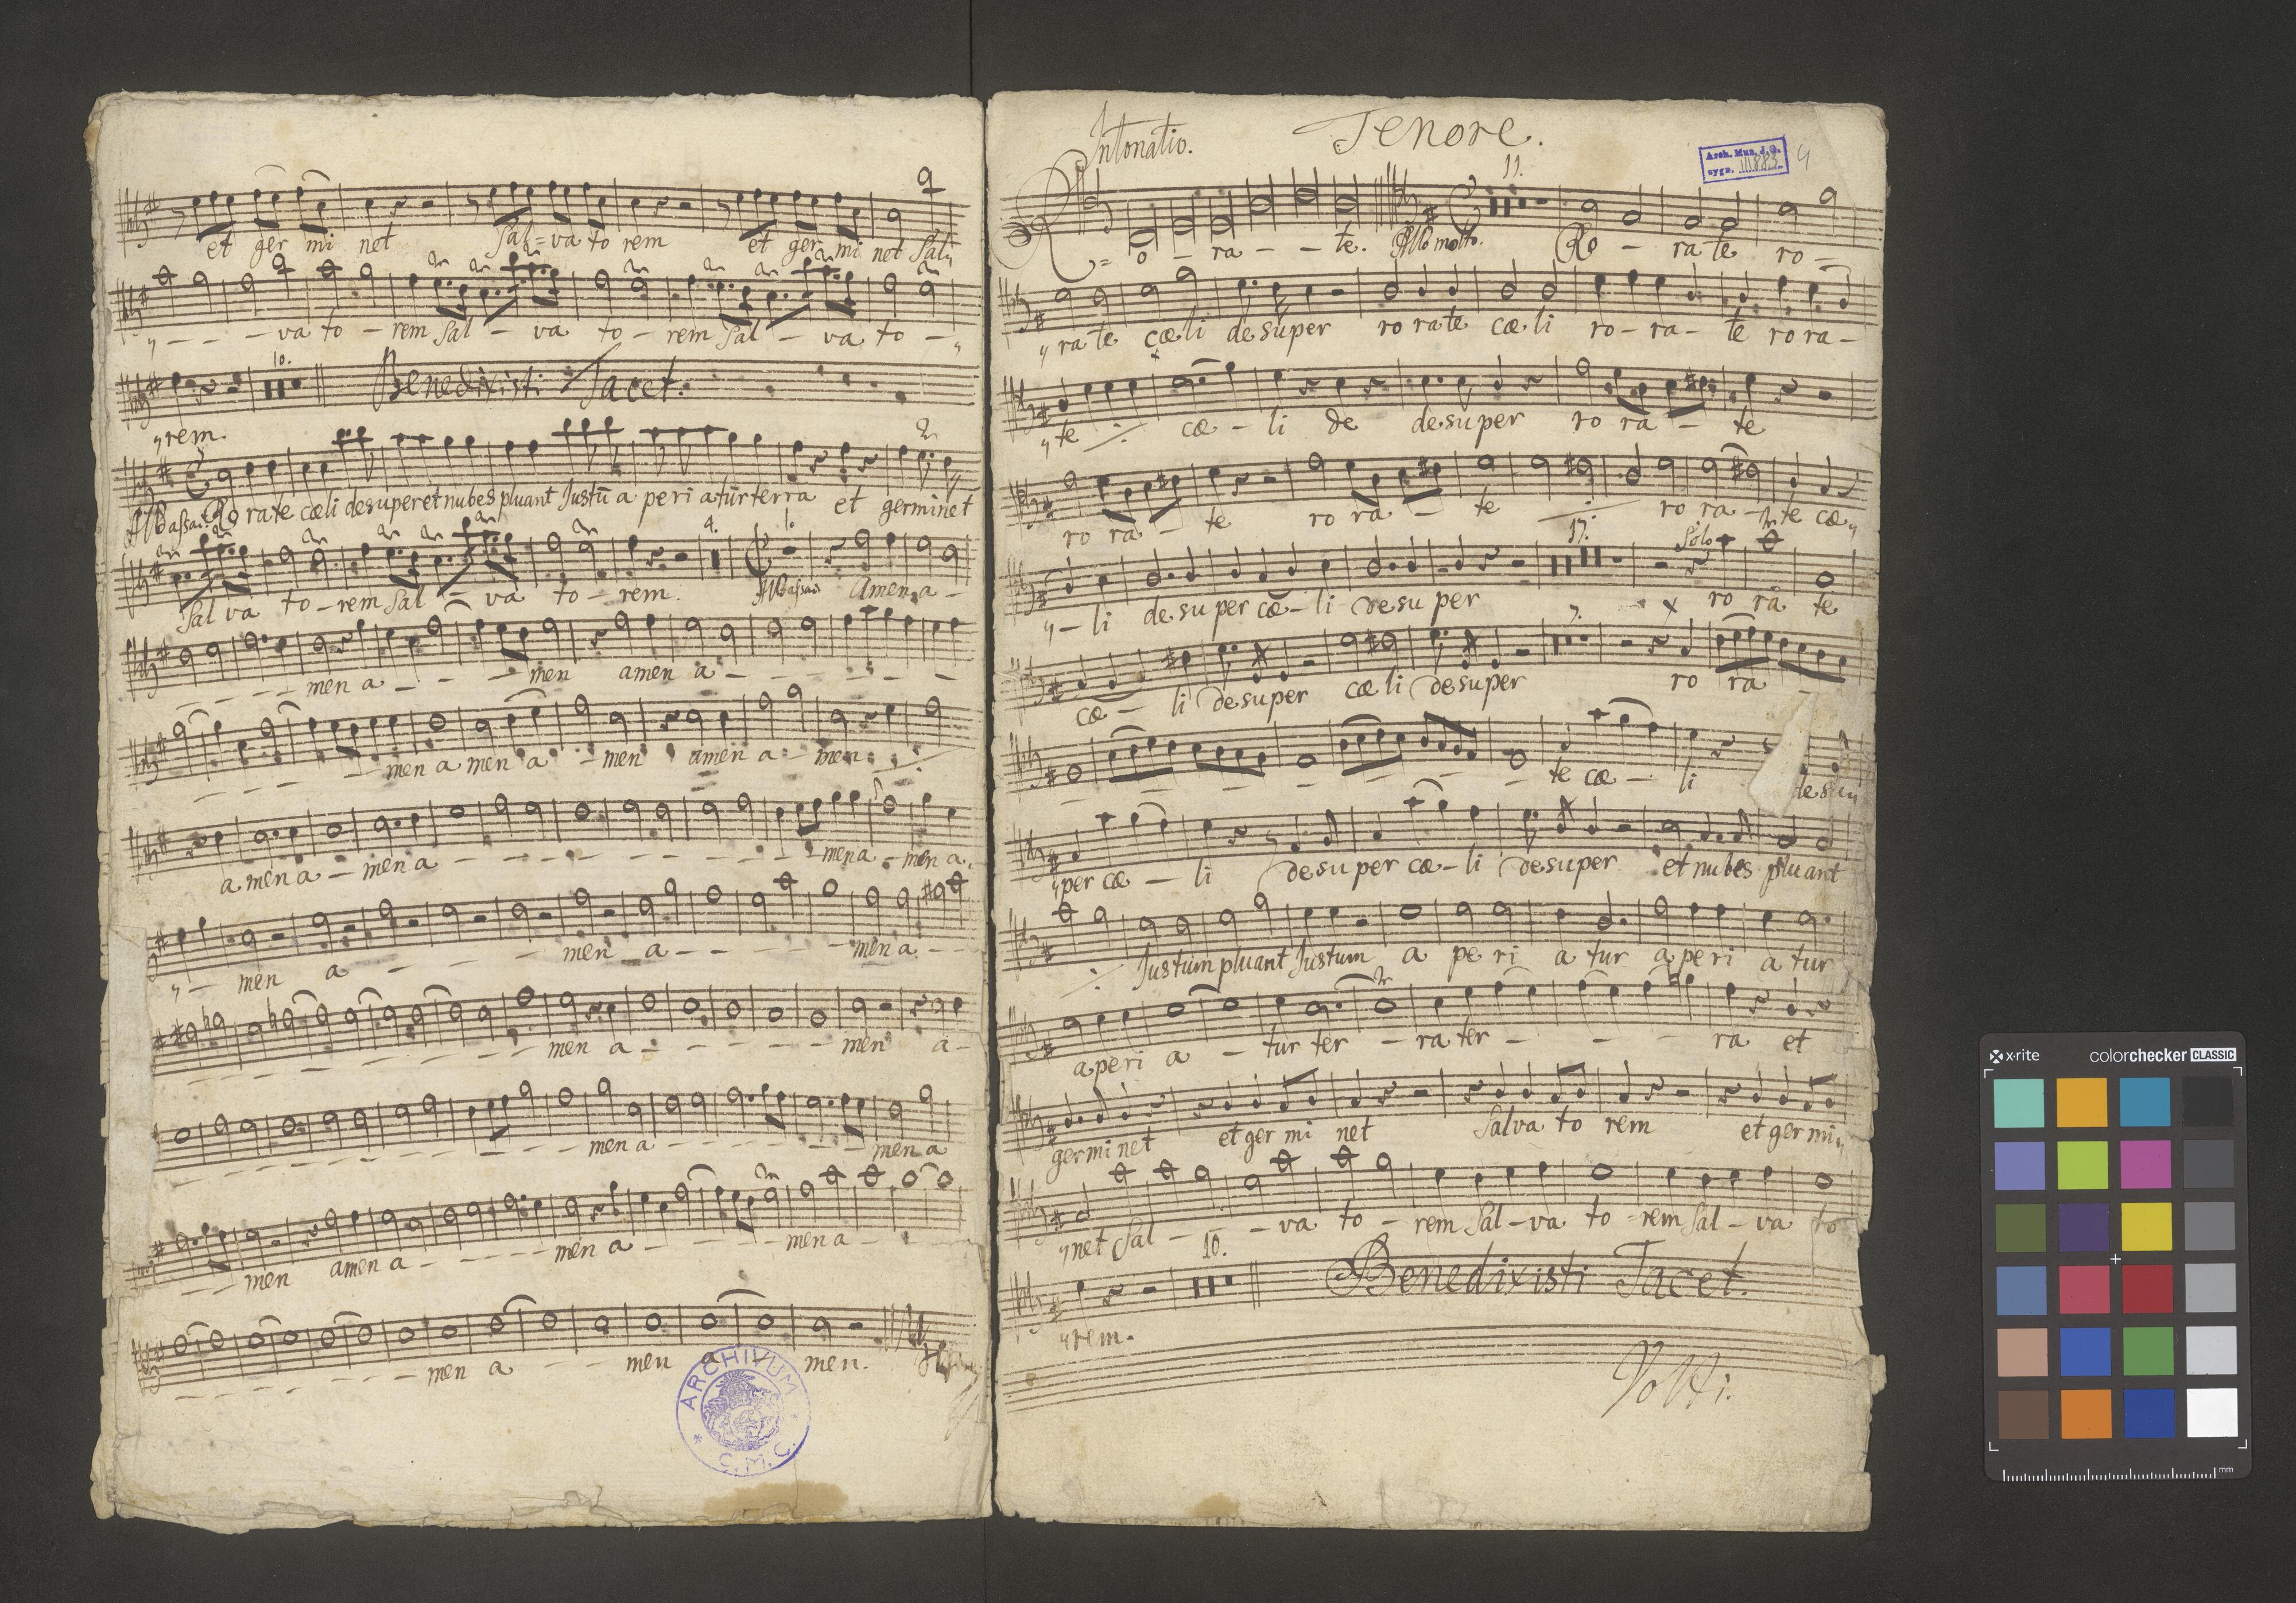 et ger mi net Sal=va to rem et ger mi net Sal„
„ - - - va to - rem Sal - va to - rem Sal - va to - „
10.
Benedixisti Tacet.
„rem.
Ro rate cœli desuper et nubes pluant Justū a peri atur terra et germinet
4. 1.
Sal va to - rem Sal - va to - rem. Amen a -
- - - - men a - - - - men amen a - - - - - -
- - - - - men a men a - men amen a - men
a men a - men a - - - - - - - - - men a - men a„
„ - men a - - - - men a - - - - men a - -
- - - - - - - - men a - - - - - men a -
- - - - - - - - - - men a - - - - - - men a
- - men amen a - - - - men a - - - - men a - -
- - - - - - - men a - - men a - men.
ARCHIVUM
C. M. C.
Intonatio. Tenore.
Arch. Mun. J. G.
sygn. III883
4
11.
R=o - ra - - te. Allo molto. Ro - ra te ro =
„ra te cœli desuper ro rate cœ li ro - ra - te ro ra -
„te cœ - li de desuper ro ra - te
ro ra - te ro ra - te ro ra - te cœ„
17. Solo
„ - li de su per cœ - li de su per ro ra te
7.
cœ - li desuper cœ li desuper ro ra -
- - - - - - - te cœ - li desu„
„per cœ - li desuper cœ - li desuper et nubes pluant
Justum pluant Justum a pe ri a tur a pe ri a tur
a peri a - tur ter - ra ter - - - ra et
germi net et ger mi net Salva to rem et ger mi„
„net Sal - - - va to - rem Sal - va to - rem Sal - va to
10.
Benedixisti Tacet.
„rem.
Volti.
x·rite colorchecker CLASSIC
mm